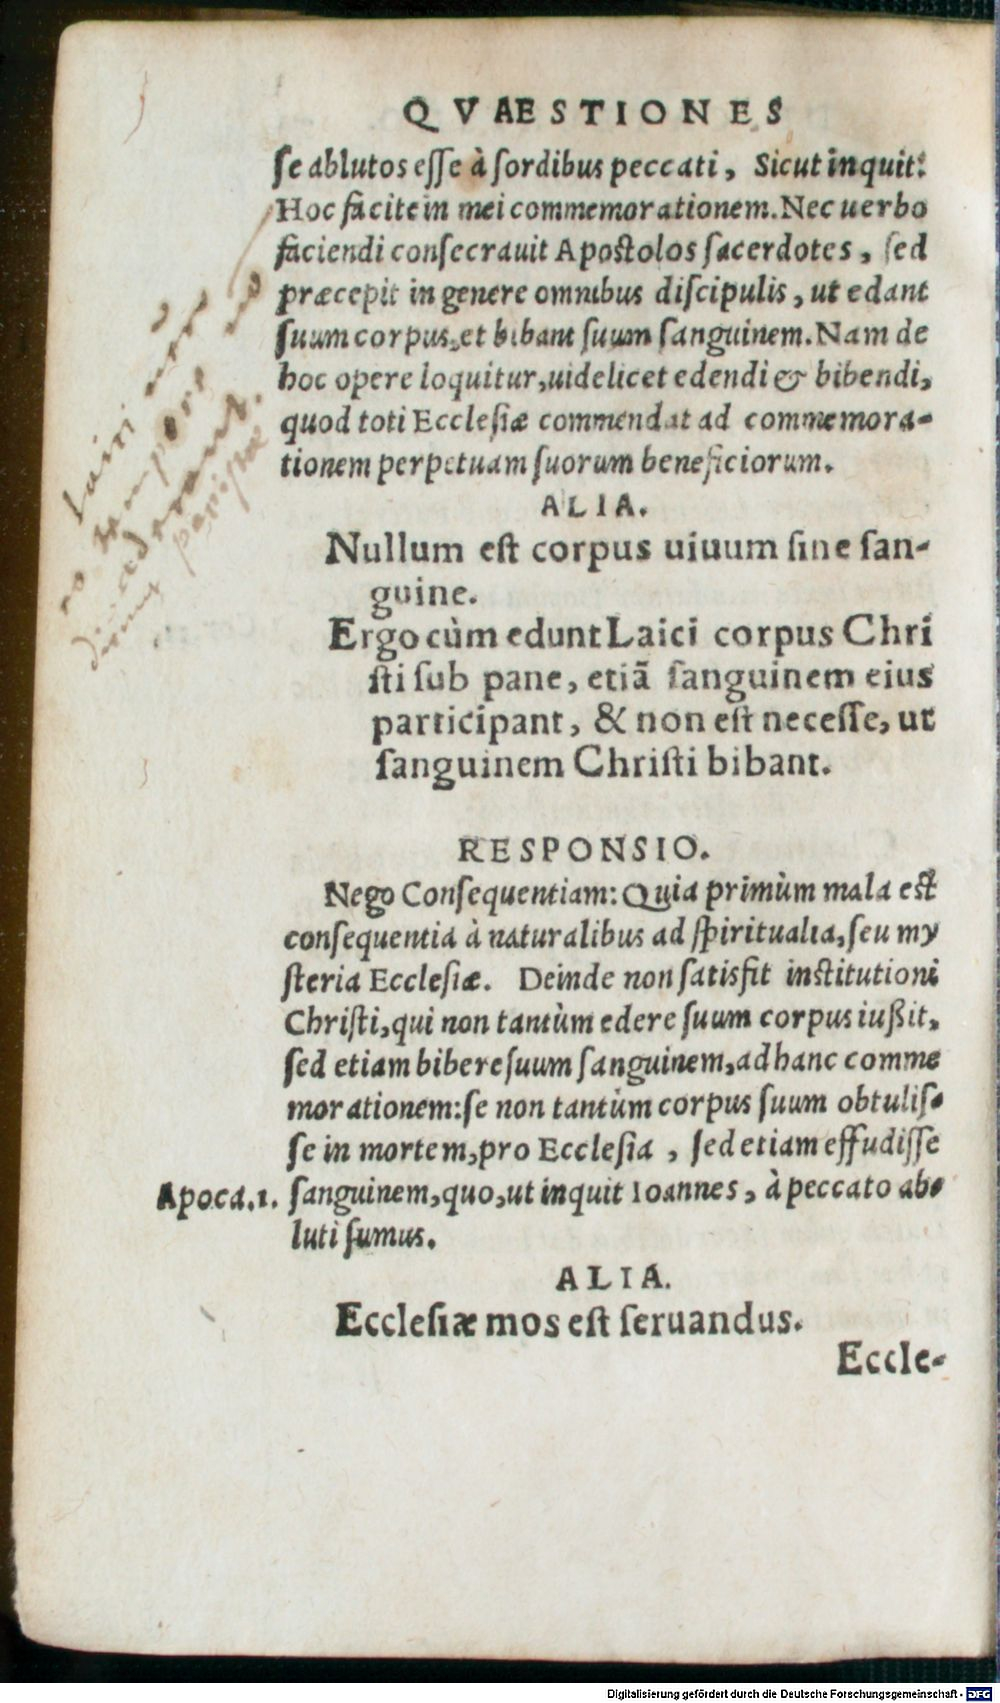 QVAESTIONES
ſe ablutos eſſe à ſordibus peccati, Sicut inquit:
Hoc facite in mei commemorationem. Nec uerbo
faciendi conſecrauit Apoſtolos ſacerdotes, ſed
præcepit in genere omnibus diſcipulis, ut edant
ſuum corpus, et bibant ſuum ſanguinem. Nam de
hoc opere loquitur, uidelicet edendi & bibendi,
quod toti Eccleſiæ commendat ad commemora-
tionem perpetuam ſuorum beneficiorum.
ALIA.
Nullum eſt corpus uiuum ſine ſan-
guine.
Ergo cùm edunt Laici corpus Chri
ſti ſub pane, etiã ſanguinem eius
participant, & non eſt neceſſe, ut
ſanguinem Chriſti bibant.
RESPONSIO.
Nego Conſequentiam: Quia primùm mala eſt
conſequentia à naturalibus ad ſpiritualia, ſeu my
ſteria Eccleſiæ. Deinde non ſatisfit inſtitutioni
Chriſti, qui non tantùm edere ſuum corpus iußit,
ſed etiam bibere ſuum ſanguinem, ad hanc comme
morationem: ſe non tantùm corpus ſuum obtuliſ-
ſe in mortem, pro Eccleſia, ſed etiam effudiſſe
Apoca.1. ſanguinem, quo, ut inquit Ioannes, à peccato ab-
luti ſumus.
ALIA.
Eccleſiæ mos eſt ſeruandus.
Eccle-
Digitalisierung gefördert durch die Deutsche Forschungsgemeinschaft - DFG